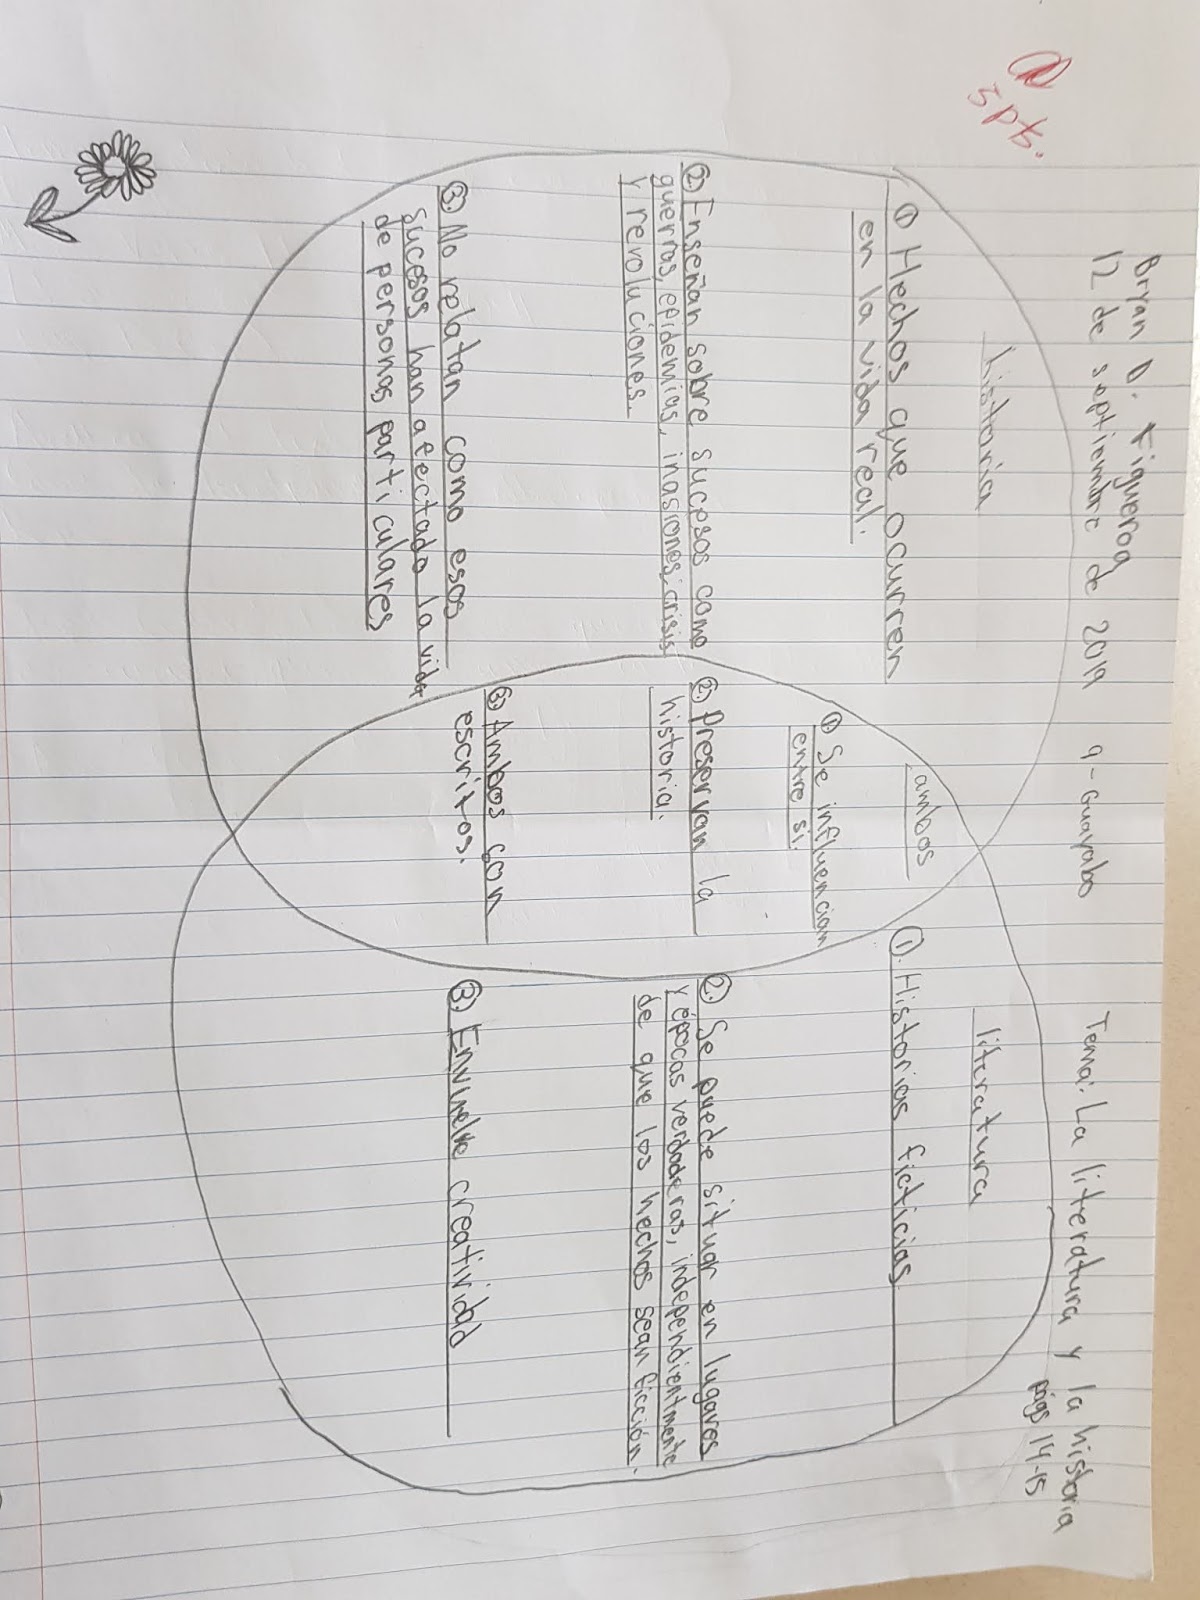 Bryan D. Figueroa
12 de septiembre de 2019
9-Guayabo
Tema: La literatura y la historia
págs 14-15
5 pts.
historia
① Hechos que ocurren
en la vida real.
②. Enseñan sobre sucesos como
guerras, epidemias, inasiones, crisis
y revoluciones.
③. No relatan como esos
sucesos han afectado la vida
de personas particulares
ambos
① Se influencian
entre sí.
②. Preservan la
historia.
③. Ambos son
escritos.
literatura
①. Historias ficticias.
②. Se puede situar en lugares
y épocas verdaderas, independientmente
de que los hechos sean ficción.
③. Envuelve creatividad